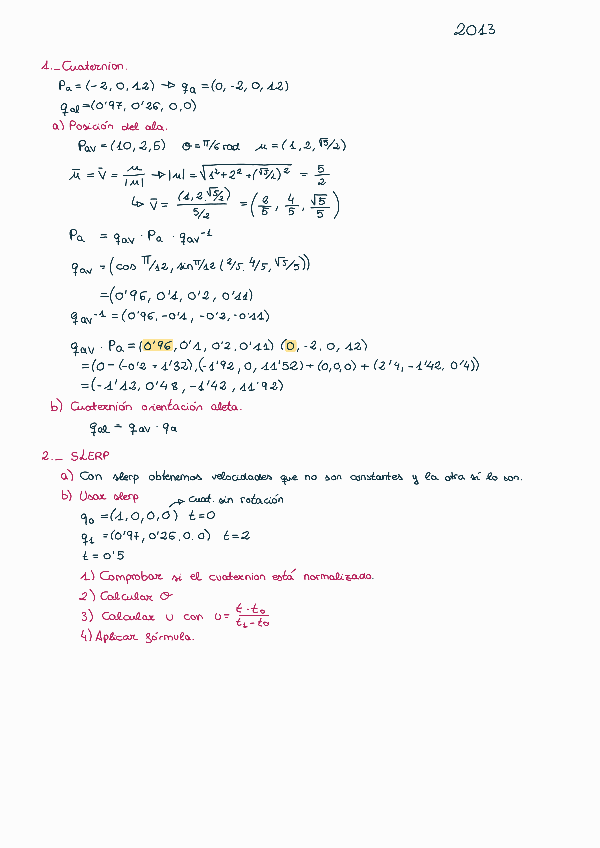 2013
1._ Cuaternion.
Pa = (-2, 0, 12) → qa = (0, -2, 0, 12)
qal = (0'97, 0'26, 0,0)
a) Posición del ala.
Pav = (10, 2, 5) θ = π/6 rad μ = (1, 2, √5/2)
μ̄ = v̄ = μ/|μ| → |μ| = √(1² + 2² + (√5/2)²) = 5/2
↳ v̄ = (1, 2, √5/2)/(5/2) = (2/5, 4/5, √5/5)
Pa = qav · Pa · qav⁻¹
qav = (cos π/12, sin π/12 (2/5, 4/5, √5/5))
= (0'96, 0'1, 0'2, 0'11)
qav⁻¹ = (0'96, -0'1, -0'2, -0'11)
qav · Pa = (0'96, 0'1, 0'2, 0'11) (0, -2, 0, 12)
= (0 - (-0'2 + 1'32), (-1'92, 0, 11'52) + (0,0,0) + (2'4, -1'42, 0'4))
= (-1'12, 0'48, -1'42, 11'92)
b) Cuaternión orientación aleta.
qal = qav · qa
2._ SLERP
a) Con slerp obtenemos velocidades que no son constantes y la otra sí lo son.
b) Usar slerp → cuat. sin rotación
q0 = (1, 0, 0, 0) t = 0
q1 = (0'97, 0'26, 0, 0) t = 2
t = 0'5
1) Comprobar si el cuaternion está normalizado.
2) Calcular θ
3) Calcular u con u = t - t0 / t1 - t0
4) Aplicar fórmula.